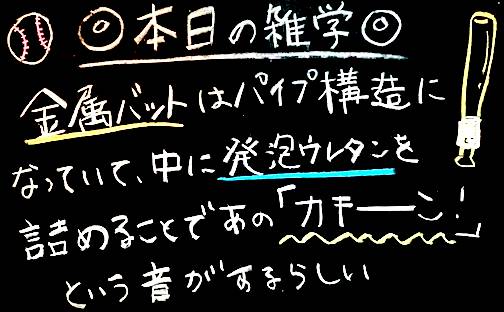 ◎本日の雑学◎
金属バットはパイプ構造に
なっていて、中に発泡ウレタンを
詰めることであの「カキーーン!」
という音がするらしい